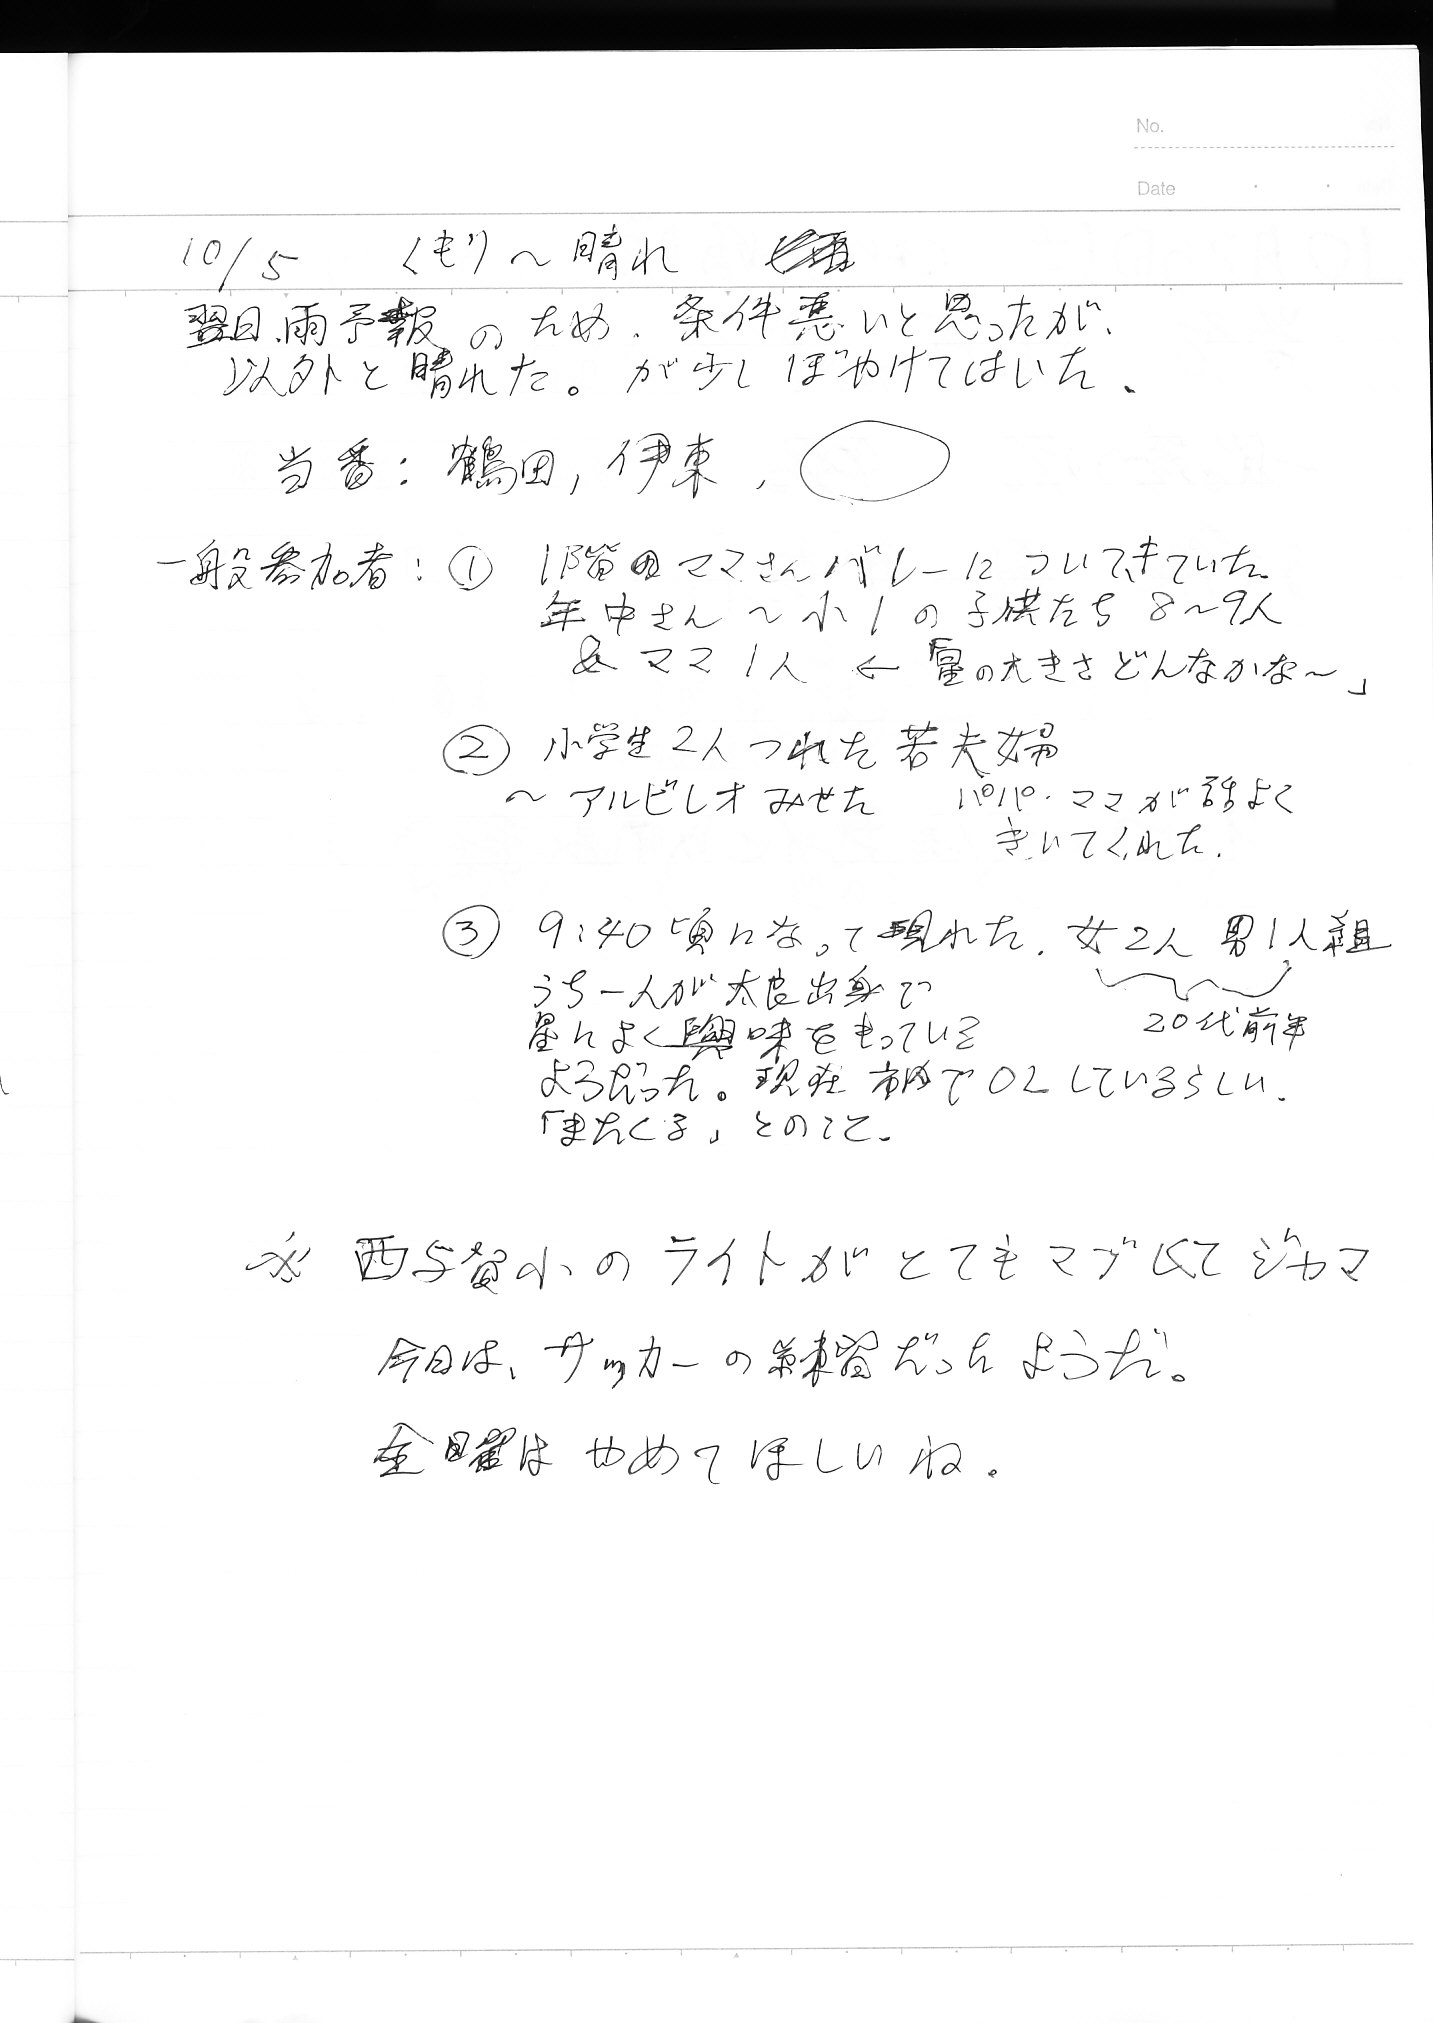 No.
Date
10/5 くもり〜晴れ
翌日、雨予報のため、条件悪いと思ったが、
以外と晴れた。が少しぼやけてはいた、
当番：鶴田，伊東，
一般参加者：① 1階のママさんバレーについてきていた。
年中さん〜小1の子供たち 8〜9人
& ママ1人 ← 「星の大きさどんなかな〜」
② 小学生2人つれた若夫婦
〜アルビレオみせた パパ・ママが話よく
きいてくれた．
③ 9:40頃になって現れた．女2人 男1人組
うち一人が太良出身で
20代前半
星によく興味をもっている
ようだった。現在市内でOLしているらしい．
「またくる」とのこと。
※ 西与賀小のライトがとてもマブしくてジャマ
今日は、サッカーの練習だったようだ。
金曜はやめてほしいね。